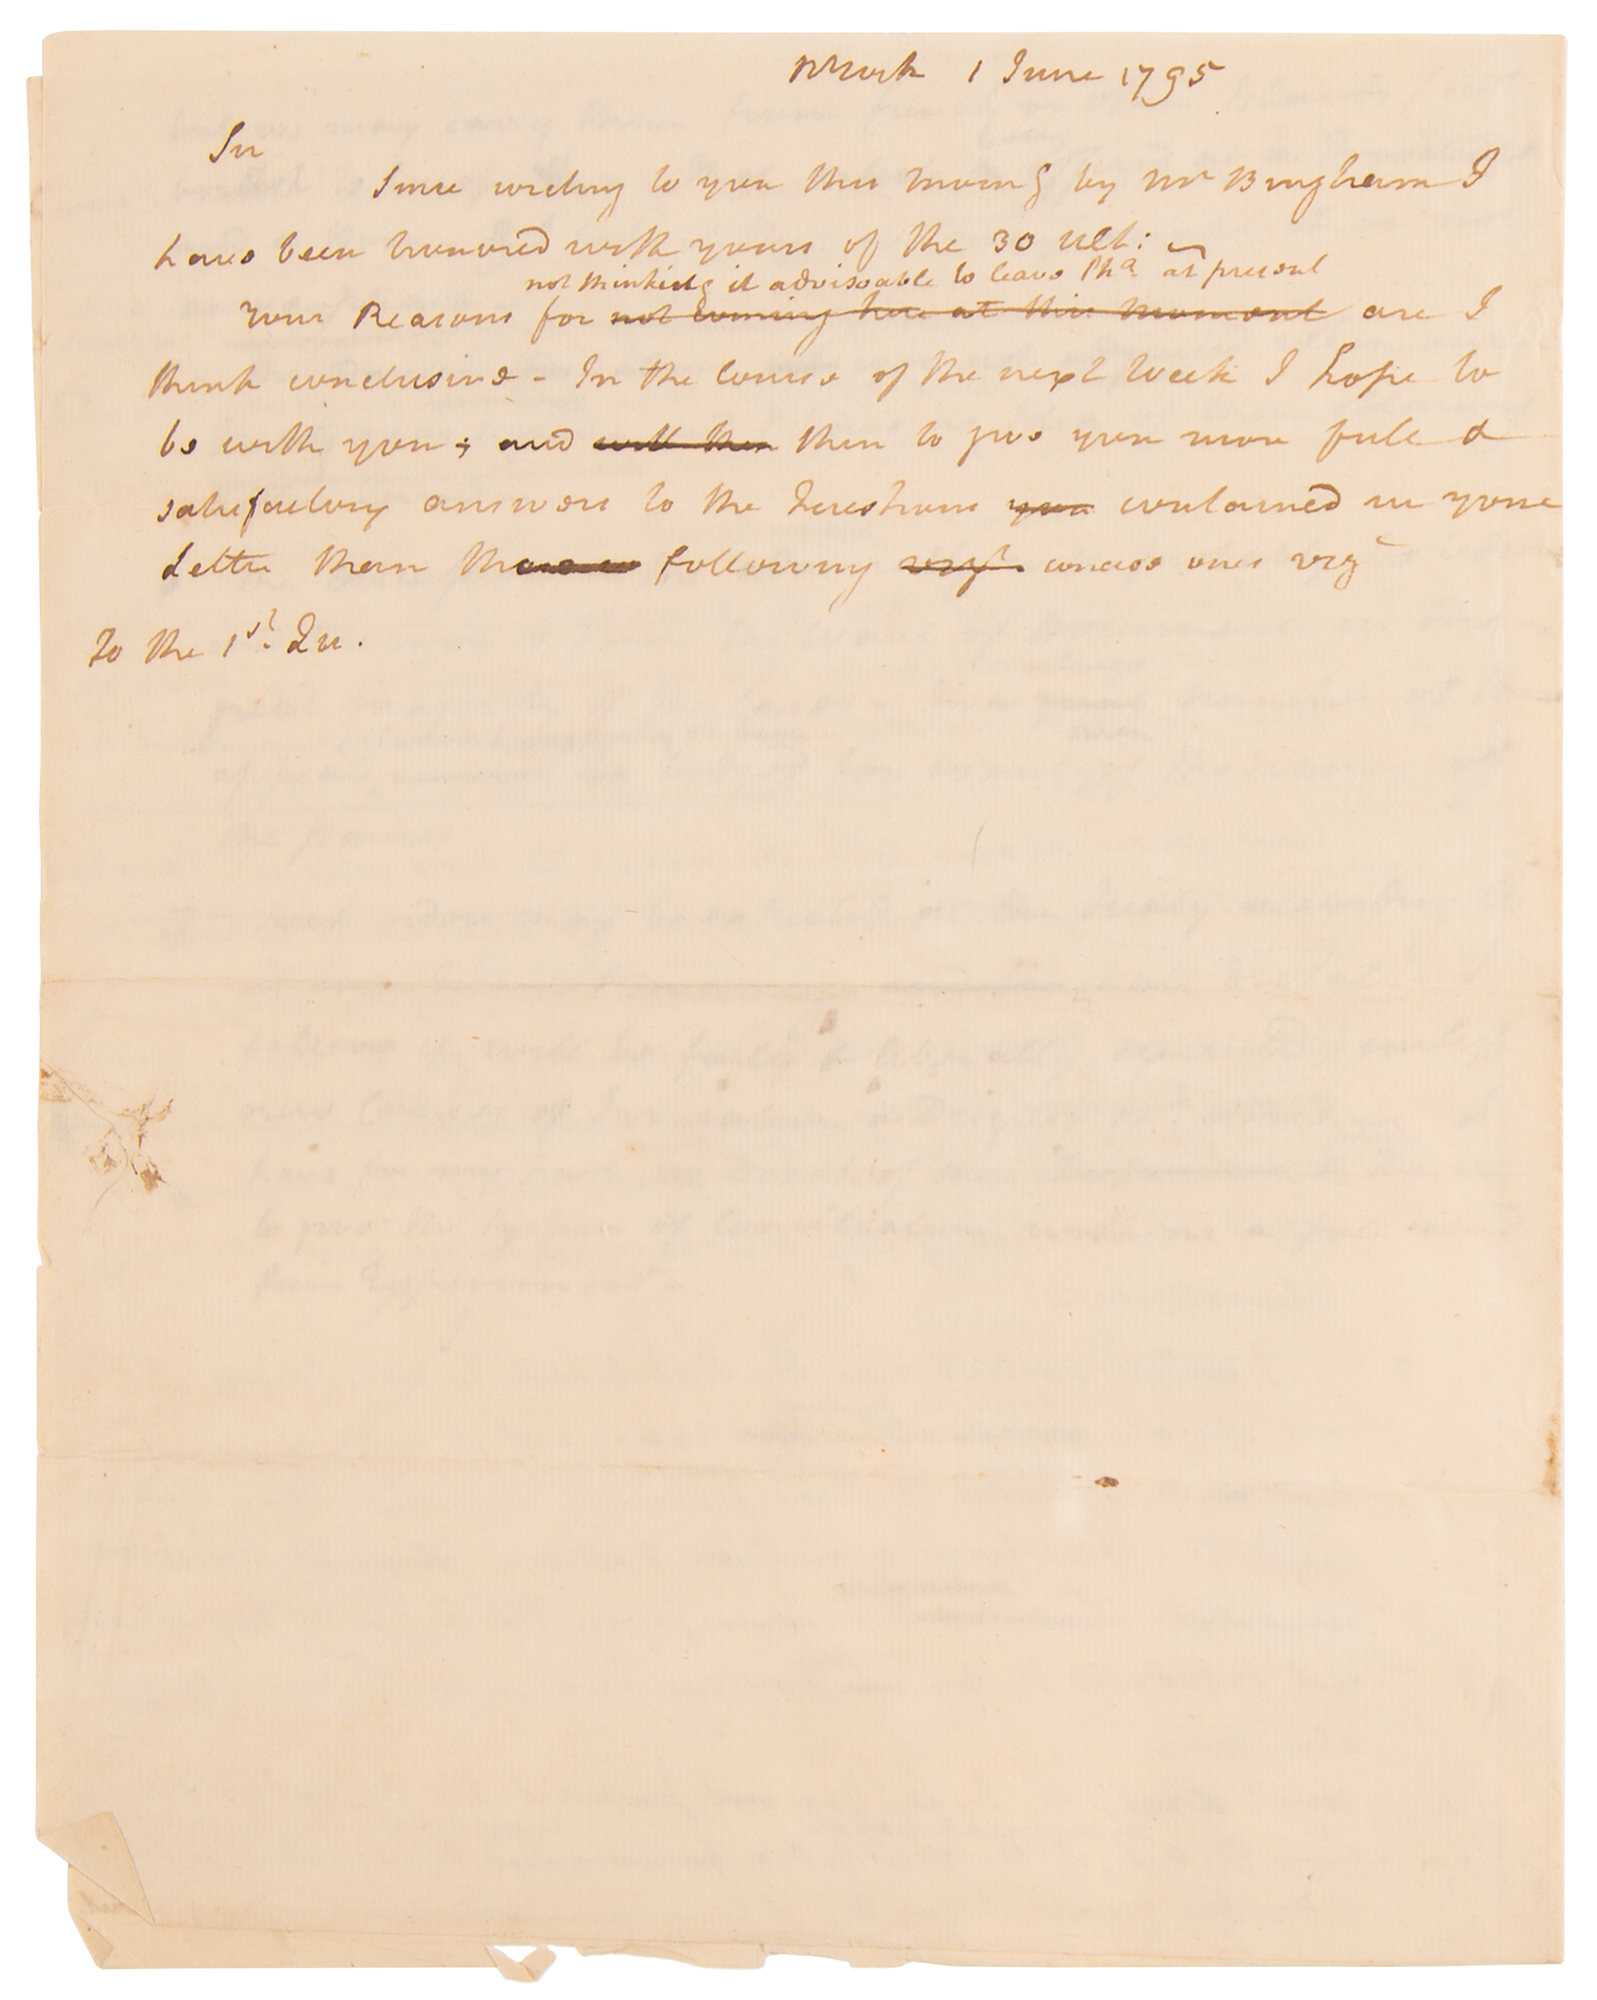 NYork 1 June 1795
Sir
Since writing to you this morng by Mr Bingham I
have been honored with yours of the 30 Ult:
not thinking it advisoable to leave Pha at present
Your Reasons for not coming here at this moment are I
think conclusive - In the Course of the next Week I hope to
be with you; and will then then to give you more full &
satisfactory answers to the Questions you contained in your
Letter than the following vizt. concise ones viz
To the 1st. Qu.